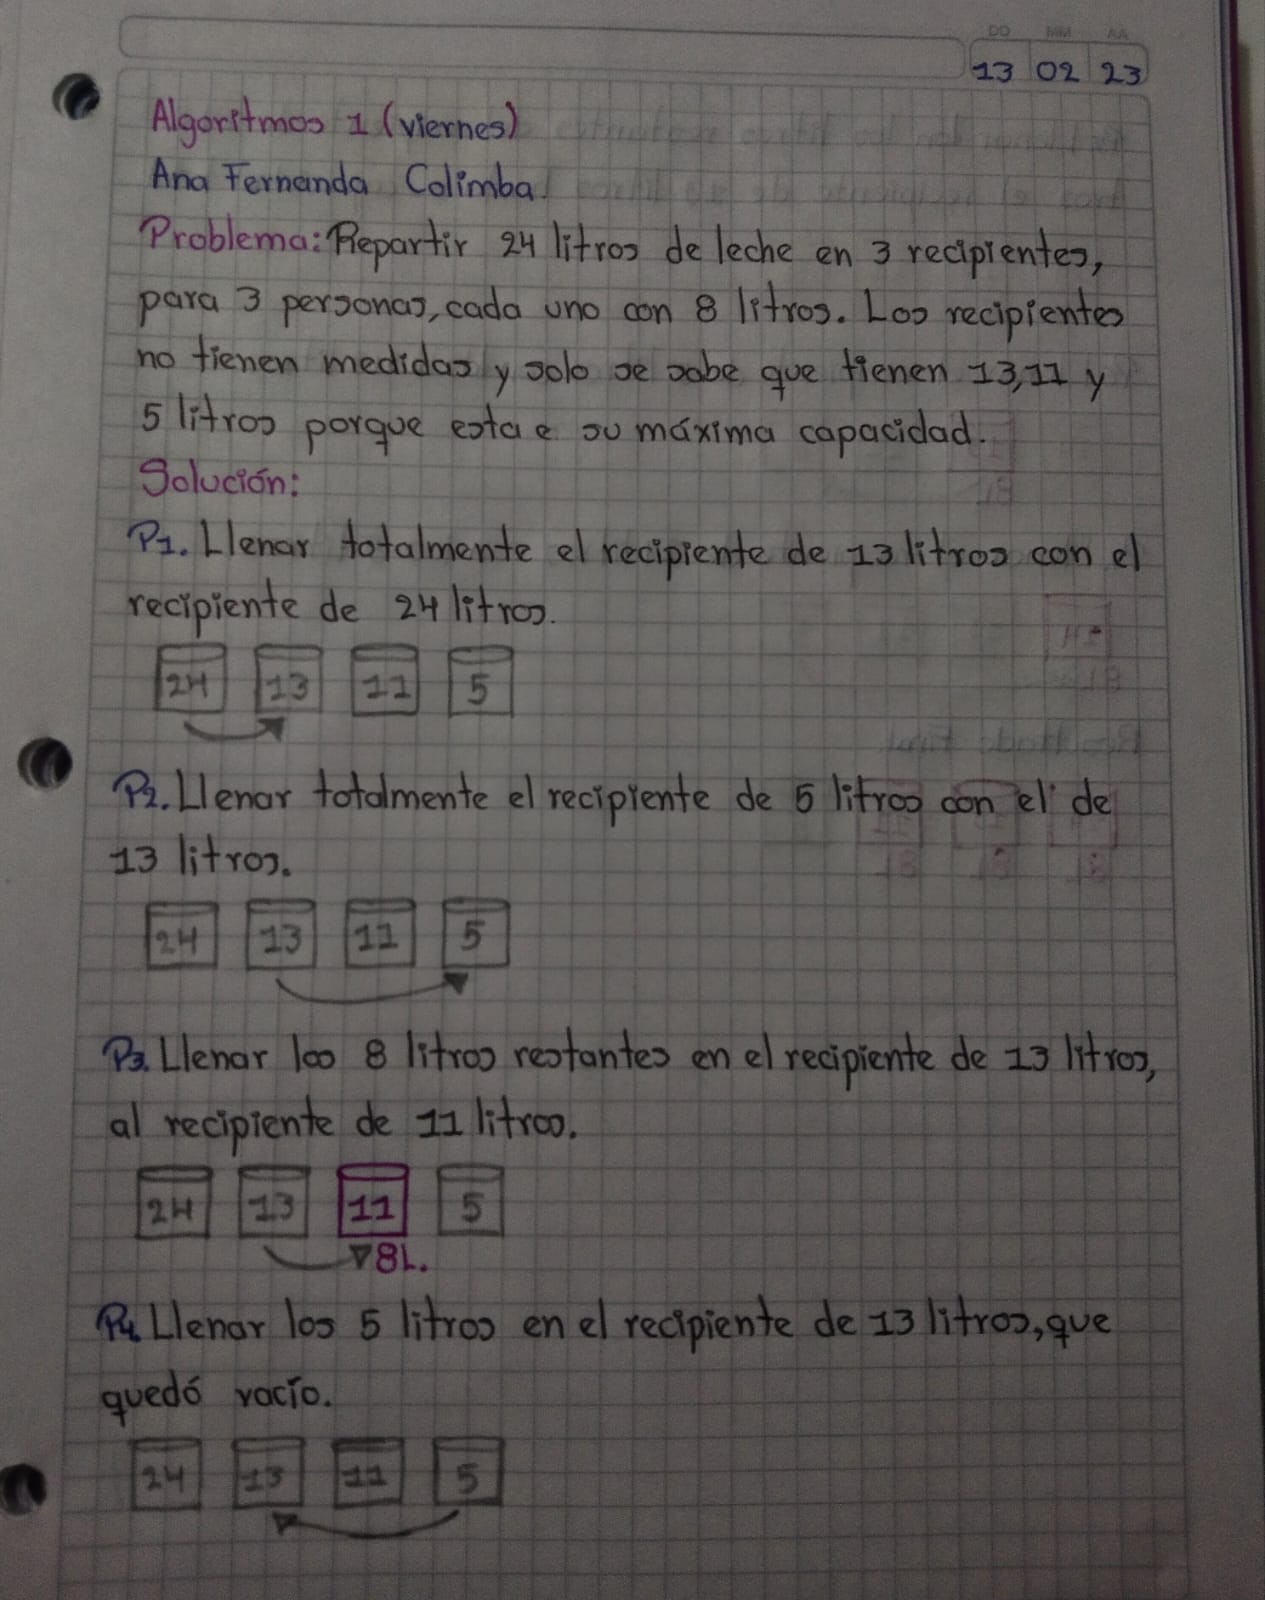 DD MM AA
13 02 23
Algoritmos 1 (viernes)
Ana Fernanda Colimba
Problema: Repartir 24 litros de leche en 3 recipientes,
para 3 personas, cada uno con 8 litros. Los recipientes
no tienen medidas y solo se sabe que tienen 13,11 y
5 litros porque esta e su máxima capacidad.
Solución:
P1. Llenar totalmente el recipiente de 13 litros con el
recipiente de 24 litros.
24 13 11 5
P2. Llenar totalmente el recipiente de 5 litros con el de
13 litros.
24 13 11 5
P3. Llenar los 8 litros restantes en el recipiente de 13 litros,
al recipiente de 11 litros.
24 13 11 5
8L.
P4. Llenar los 5 litros en el recipiente de 13 litros, que
quedó vacío.
24 13 11 5